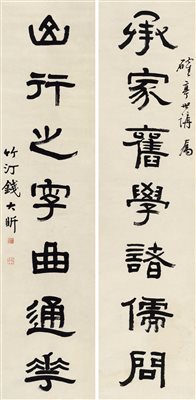 確亭世講屬
承家舊學諸儒問
山行之字曲通花
竹汀錢大昕